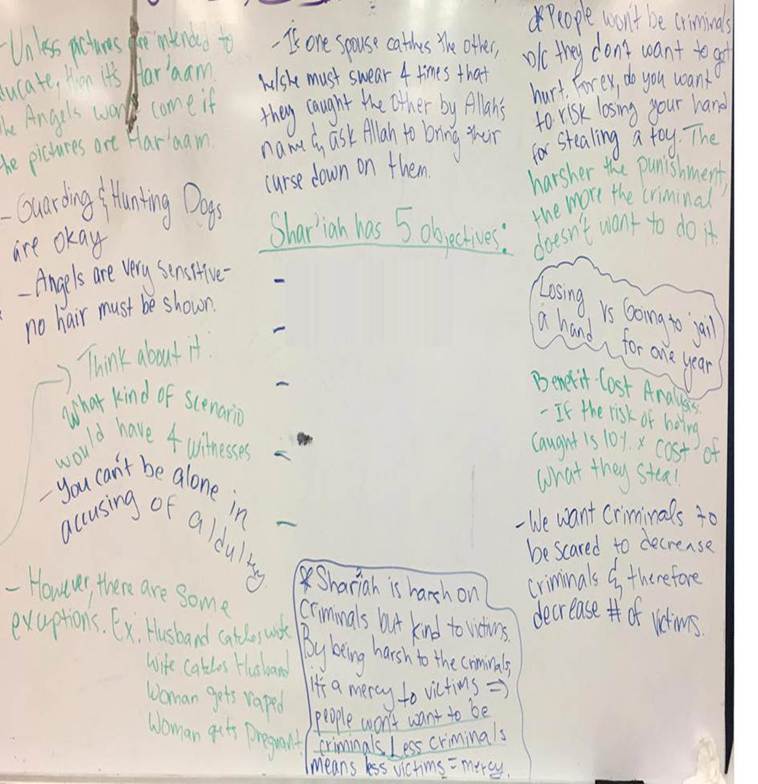 - Unless pictures are intended to
ducate, then it's Har'aam.
he Angels won't come if
he pictures are Har'aam.
- Guarding & Hunting Dogs
are okay
- Angels are very sensitive-
no hair must be shown.
Think about it:
What kind of scenario
would have 4 witnesses
- You can't be alone in
accusing of aldultry
- However, there are some
exceptions. Ex: Husband catches wife
Wife catches Husband
Woman gets raped
Woman gets Pregnant
- If one spouse catches the other,
he/she must swear 4 times that
they caught the other by Allah's
name & ask Allah to bring their
curse down on them.
Shar'iah has 5 objectives:
-
-
-
-
-
* Shariah is harsh on
criminals but kind to victims.
By being harsh to the criminals,
it's a mercy to victims =>
people won't want to be
criminals. Less criminals
means less victims = mercy.
* People won't be criminals
b/c they don't want to get
hurt. For ex, do you want
to risk losing your hand
for stealing a toy. The
harsher the punishment,
the more the criminal
doesn't want to do it.
Losing a hand vs Going to jail for one year
Benefit-Cost Analysis
- If the risk of
caught is 10% x cost of
what they steal
- We want criminals to
be scared to decrease
criminals & therefore
decrease # of victims.